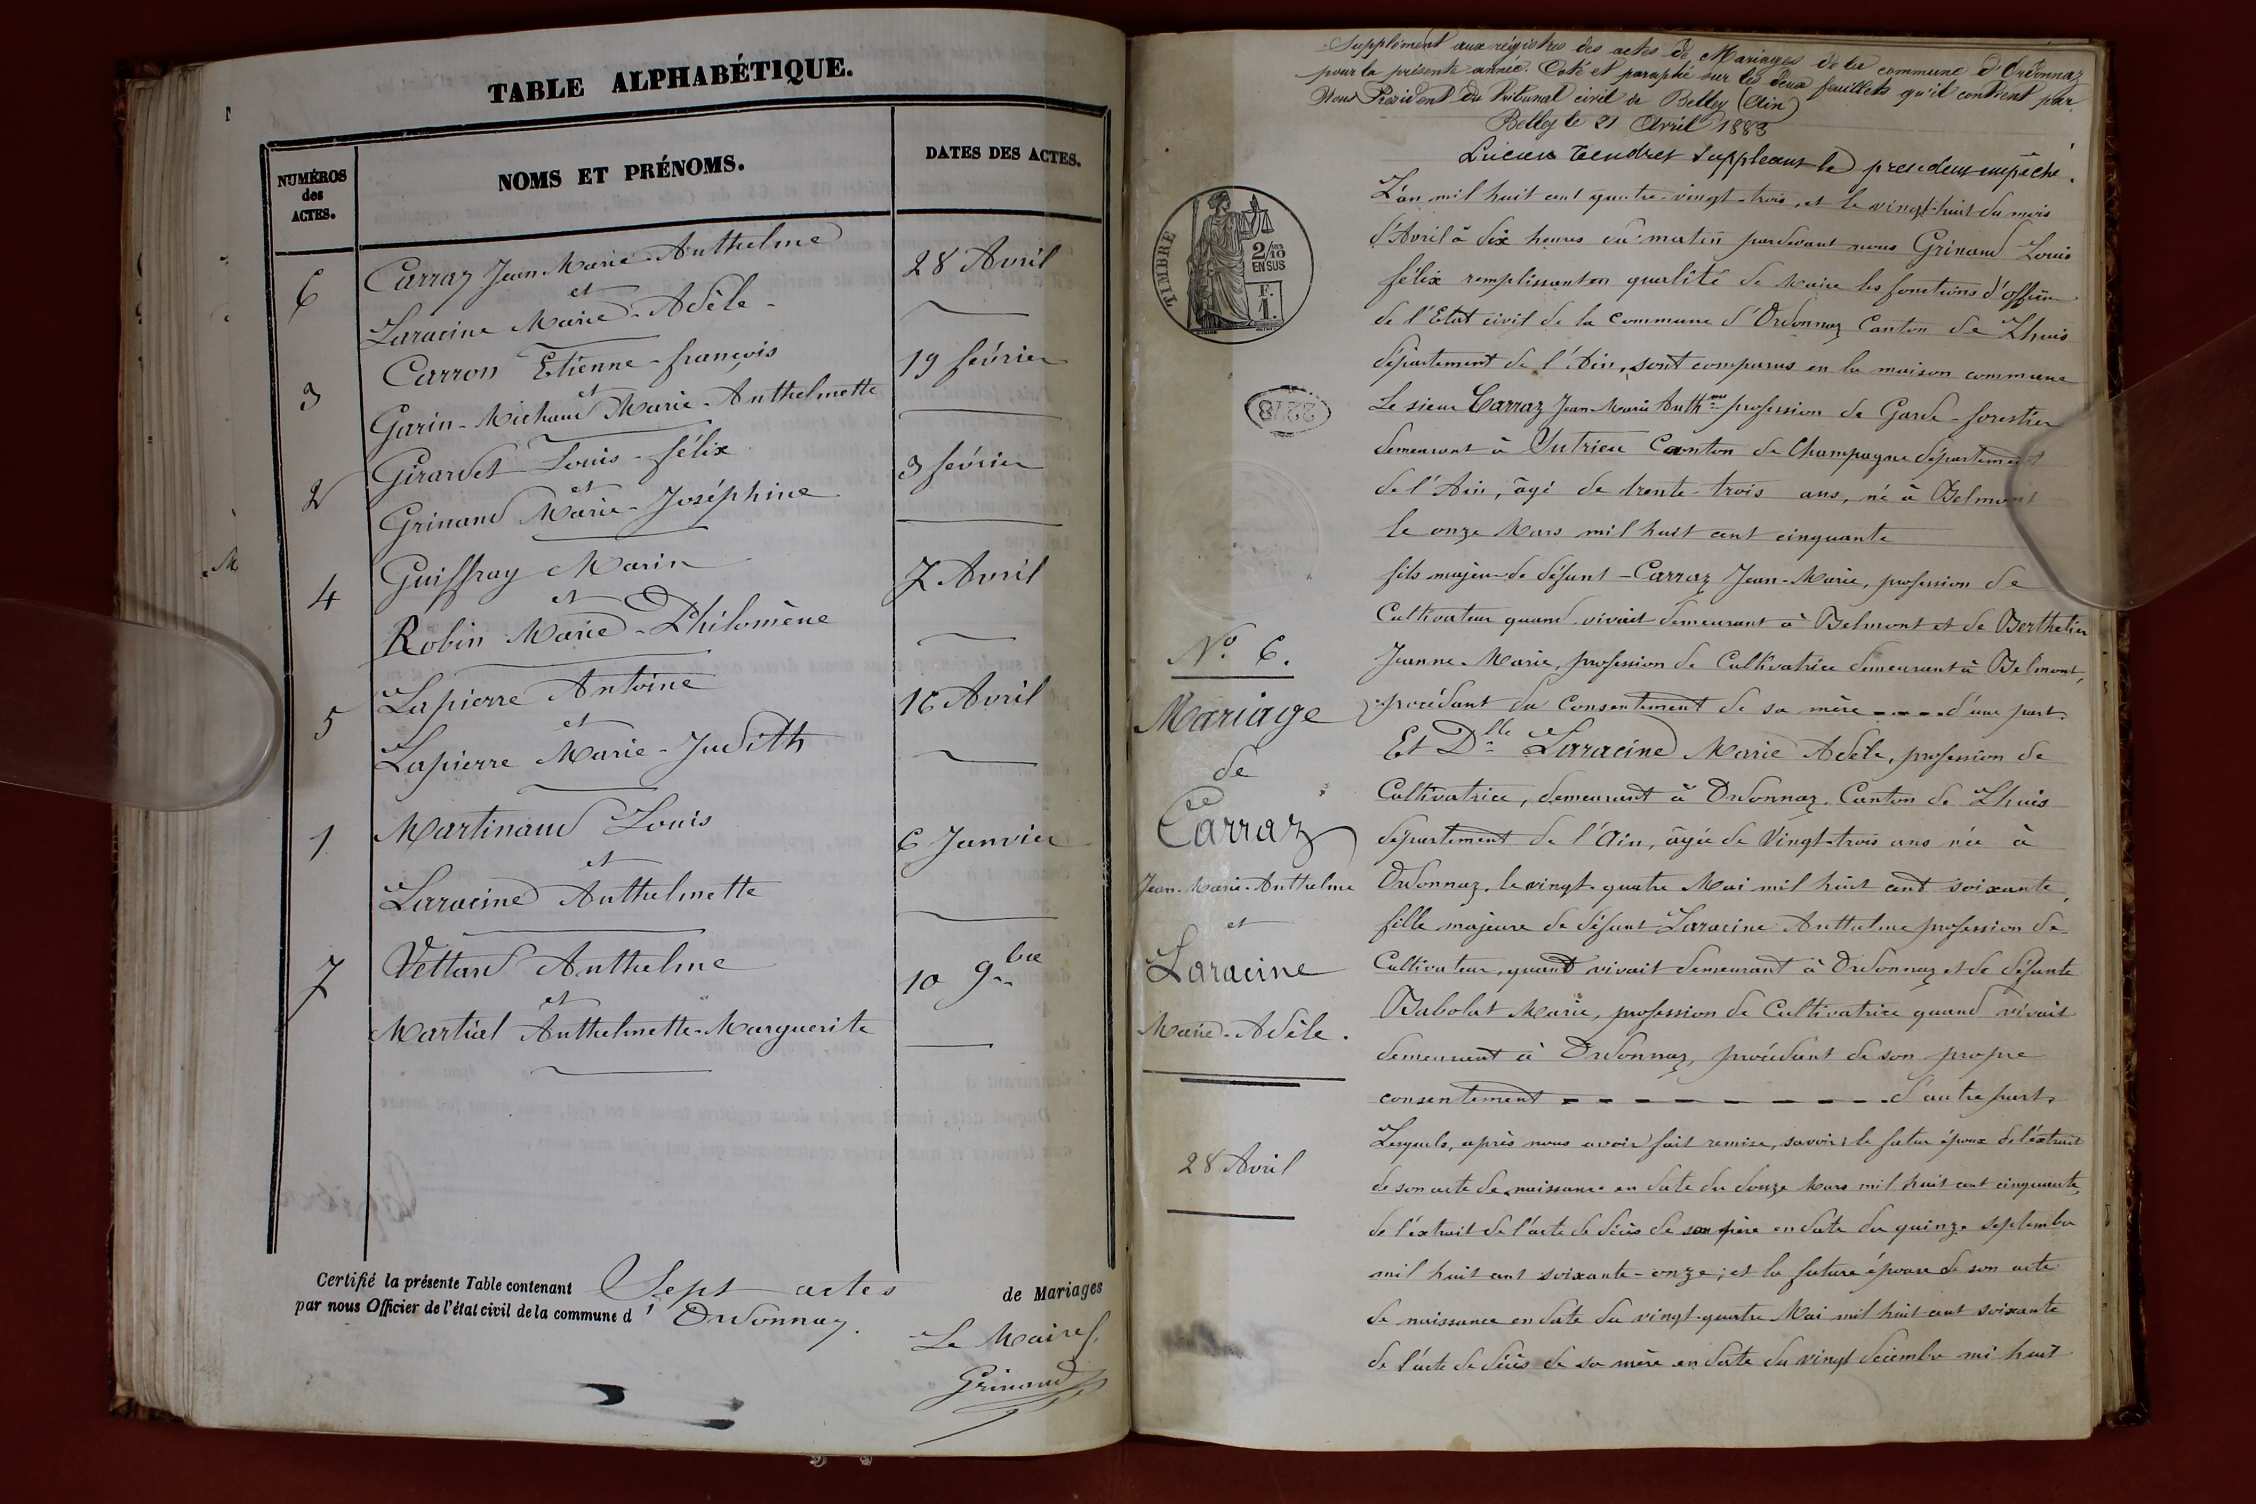 TABLE ALPHABÉTIQUE.
NUMÉROS
des
ACTES.
NOMS ET PRÉNOMS.
DATES DES ACTES.
6
Carraz Jean-Marie-Anthelme
28 Avril
et
Laracine Marie-Adèle
3
Carron Etienne-françois
19 février
et
Garin-Michaud Marie-Anthelmette
2
Girardet Louis-félix
3 février
et
Grinand Marie-Joséphine
4
Guiffray Marin
7 Avril
et
Robin Marie-Philomène
5
Lapierre Antoine
16 Avril
et
Lapierre Marie-Judith
1
Martinand Louis
6 Janvier
et
Laracine Anthelmette
7
Vettard Anthelme
10 9bre
et
Martial Anthelmette-Marguerite
Certifié la présente Table contenant Sept actes de Mariages
par nous Officier de l'état civil de la commune d' Ordonnaz.
Le Maire
Grinand
Supplément aux régistres des actes de Mariages de la commune d'Ordonnaz
pour la présente année. Coté et paraphé sur les deux feuillets qu'il contient par
Nous Président du Tribunal civil de Belley (Ain)
Belley le 21 Avril 1883
Lucien Tendret suppleant le president empêché.
TIMBRE
2/10
EN SUS
F.
1.
L'an mil huit cent quatre-vingt-trois, et le vingt-huit du mois
d'Avril à dix heures du matin pardevant nous Grinand Louis
félix remplissant en qualité de Maire les fonctions d'officier
de l'Etat civil de la Commune d'Ordonnaz Canton de Lhuis
département de l'Ain, sont comparus en la maison commune
Le sieur Carraz Jean-Marie Anthme profession de Garde-forestier
demeurant à Sutrieu Canton de Champagne département
de l'Ain, âgé de trente-trois ans, né à Belmont
le onze Mars mil huit cent cinquante
fils majeur de défunt Carraz Jean-Marie, profession de
Cultivateur quand vivait demeurant à Belmont et de Berthelier
Jeanne-Marie, profession de Cultivatrice demeurant à Belmont,
procédant du Consentement de sa mère d'une part.
Et Dlle Laracine Marie Adèle, profession de
Cultivatrice, demeurant à Ordonnaz, Canton de Lhuis
département de l'Ain, âgée de Vingt-trois ans née à
Ordonnaz, le vingt-quatre Mai mil huit cent soixante,
fille majeure de défunt Laracine Anthelme profession de
Cultivateur, quand vivait demeurant à Ordonnaz et de défunte
Babolat Marie, profession de Cultivatrice quand vivait
demeurant à Ordonnaz, procédant de son propre
consentement d'autre part.
Lesquels, après nous avoir fait remise, savoir: le futur époux de l'extrait
de son acte de naissance en date du douze Mars mil huit cent cinquante,
de l'extrait de l'acte de décès de son père en date du quinze septembre
mil huit cent soixante-onze; et la future épouse de son acte
de naissance en date du vingt-quatre Mai mil huit cent soixante
de l'acte de décès de sa mère en date du vingt décembre mi huit
No. 6.
Mariage
de
Carraz
Jean-Marie-Anthelme
et
Laracine
Marie-Adèle.
28 Avril